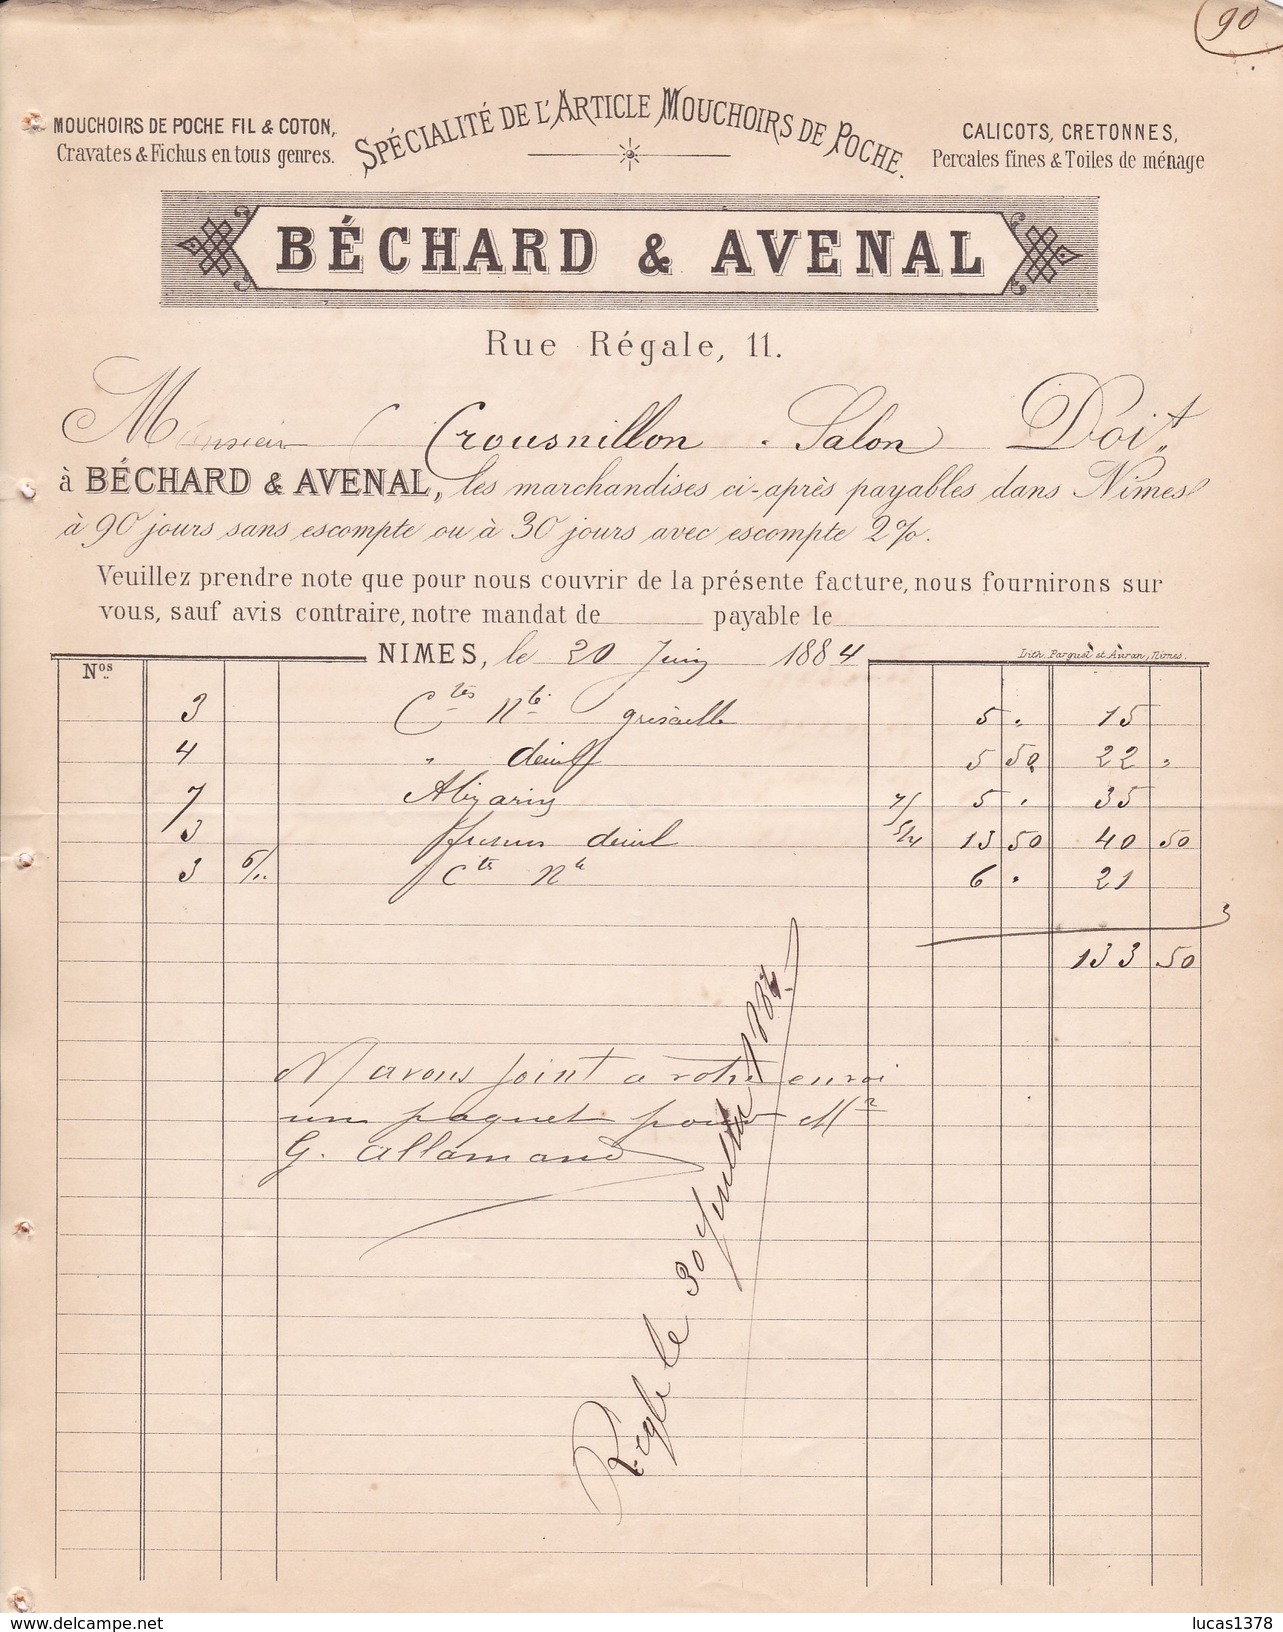 90
MOUCHOIRS DE POCHE FIL & COTON,
Cravates & Fichus en tous genres.
SPÉCIALITÉ DE L'ARTICLE MOUCHOIRS DE POCHE.
CALICOTS, CRETONNES,
Percales fines & Toiles de ménage
BÉCHARD & AVENAL
Rue Régale, 11.
Monsieur Crousnillon . Salon Doit
à BÉCHARD & AVENAL, les marchandises ci-après payables dans Nimes
à 90 jours sans escompte ou à 30 jours avec escompte 2%.
Veuillez prendre note que pour nous couvrir de la présente facture, nous fournirons sur
vous, sauf avis contraire, notre mandat de payable le
NIMES, le 20 Juin 1884
Lith. Parguel et Auran, Nimes.
Nos
3 Ctes Nté grisaille 5 . 15
4 " deuil 5 50 22 "
7 Alizarin 5 . 35
3 deuil 5/4 13 50 40 50
3 6/.. Cte Nté 6 . 21
133 50
N avons joint a votre envoi
un paquet pour Mr
G. Allamand
Reglé le 30 Juillet 1884.
lucas1378